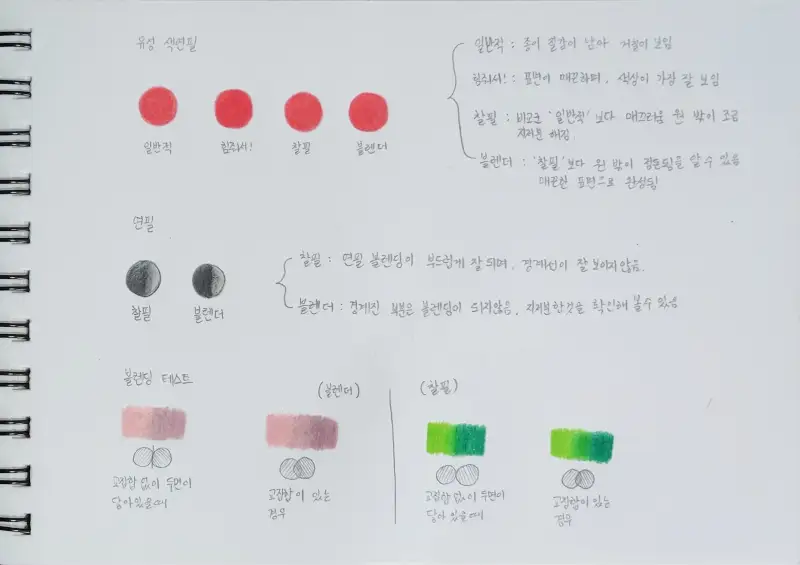 유성 색연필
일반적
힘줘서!
찰필
블렌더
일반적 : 종이 질감이 남아 거침이 보임
힘줘서! : 표면이 매끈하며, 색상이 가장 잘 보임
찰필 : 비교군 '일반적' 보다 매끄러움 원 밖이 조금
지저분 해짐.
블렌더 : '찰필' 보다 원 밖이 정돈됨을 알 수 있음
매끈한 표면으로 완성됨
연필
찰필
블렌더
찰필 : 연필 블렌딩이 부드럽게 잘 되며, 경계선이 잘 보이지않음.
블렌더 : 경계진 부분은 블렌딩이 되지않음, 지저분한것을 확인해 볼수 있음
블렌딩 테스트
(블렌더)
교집합 없이 두면이
닿아있을때
교집합이 있는
경우
(찰필)
교집합 없이 두면이
닿아 있을때
교집합이 있는
경우